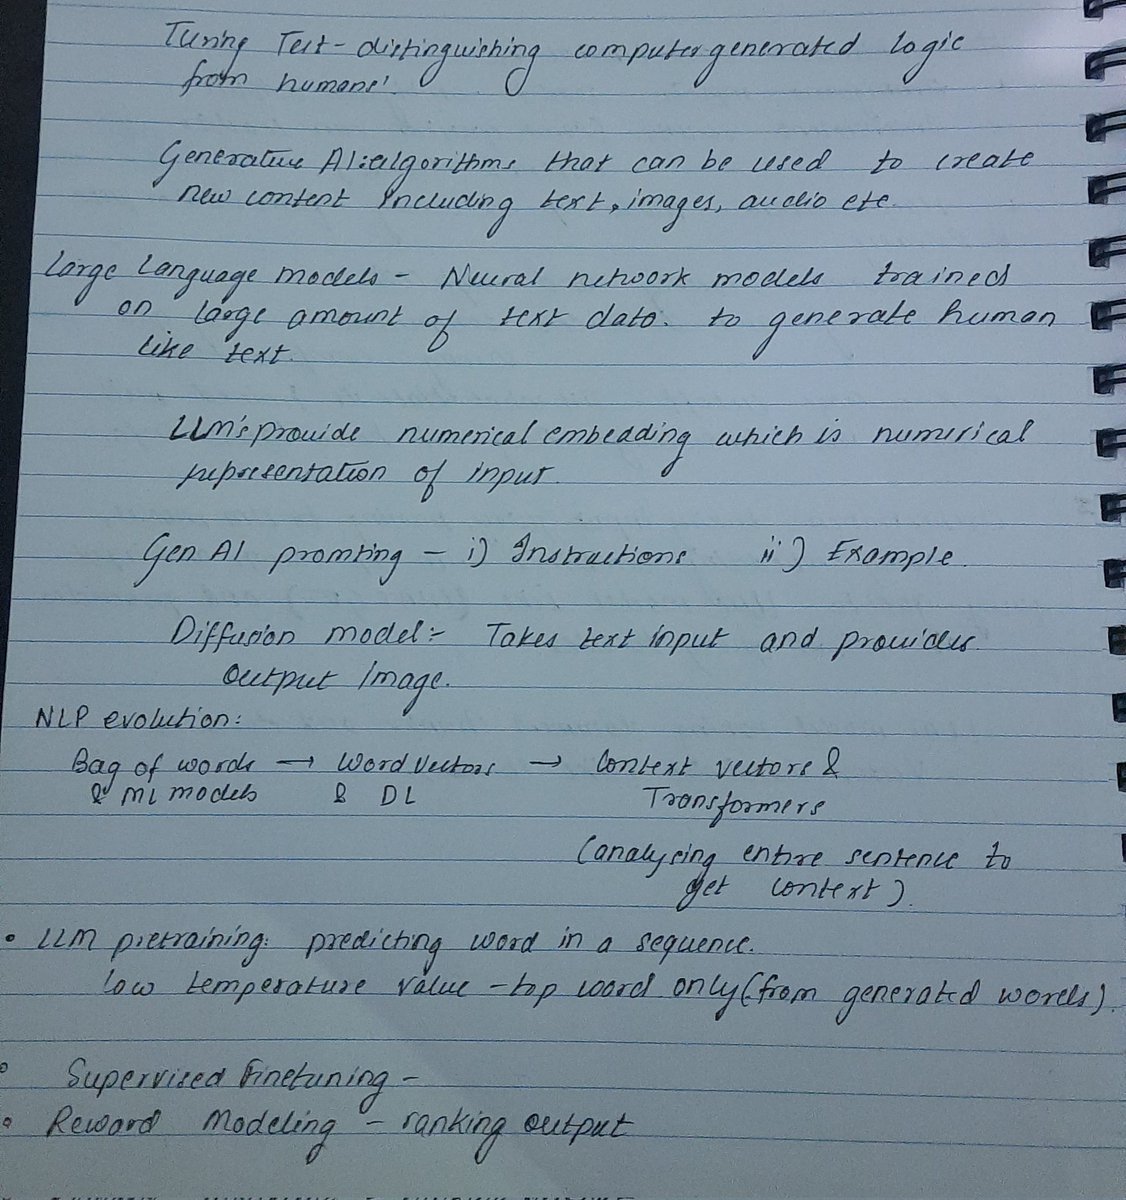 Turing Test - distinguishing computer generated logic
from humans'.
Generative AI: algorithms that can be used to create
new content including text, images, audio etc.
Large Language models - Neural network models trained
on large amount of text data. to generate human
like text.
LLM's provide numerical embedding which is numerical
representation of input.
Gen AI promting - i) Instructions ii) Example.
Diffusion model:- Takes text input and provides
output image.
NLP evolution:
Bag of words → Word Vectors → Context vectors &
& ML models & DL Transformers
(analysing entire sentence to
get context).
• LLM pretraining: predicting word in a sequence.
low temperature value - top word only (from generated words).
• Supervised Finetuning -
• Reward Modeling - ranking output